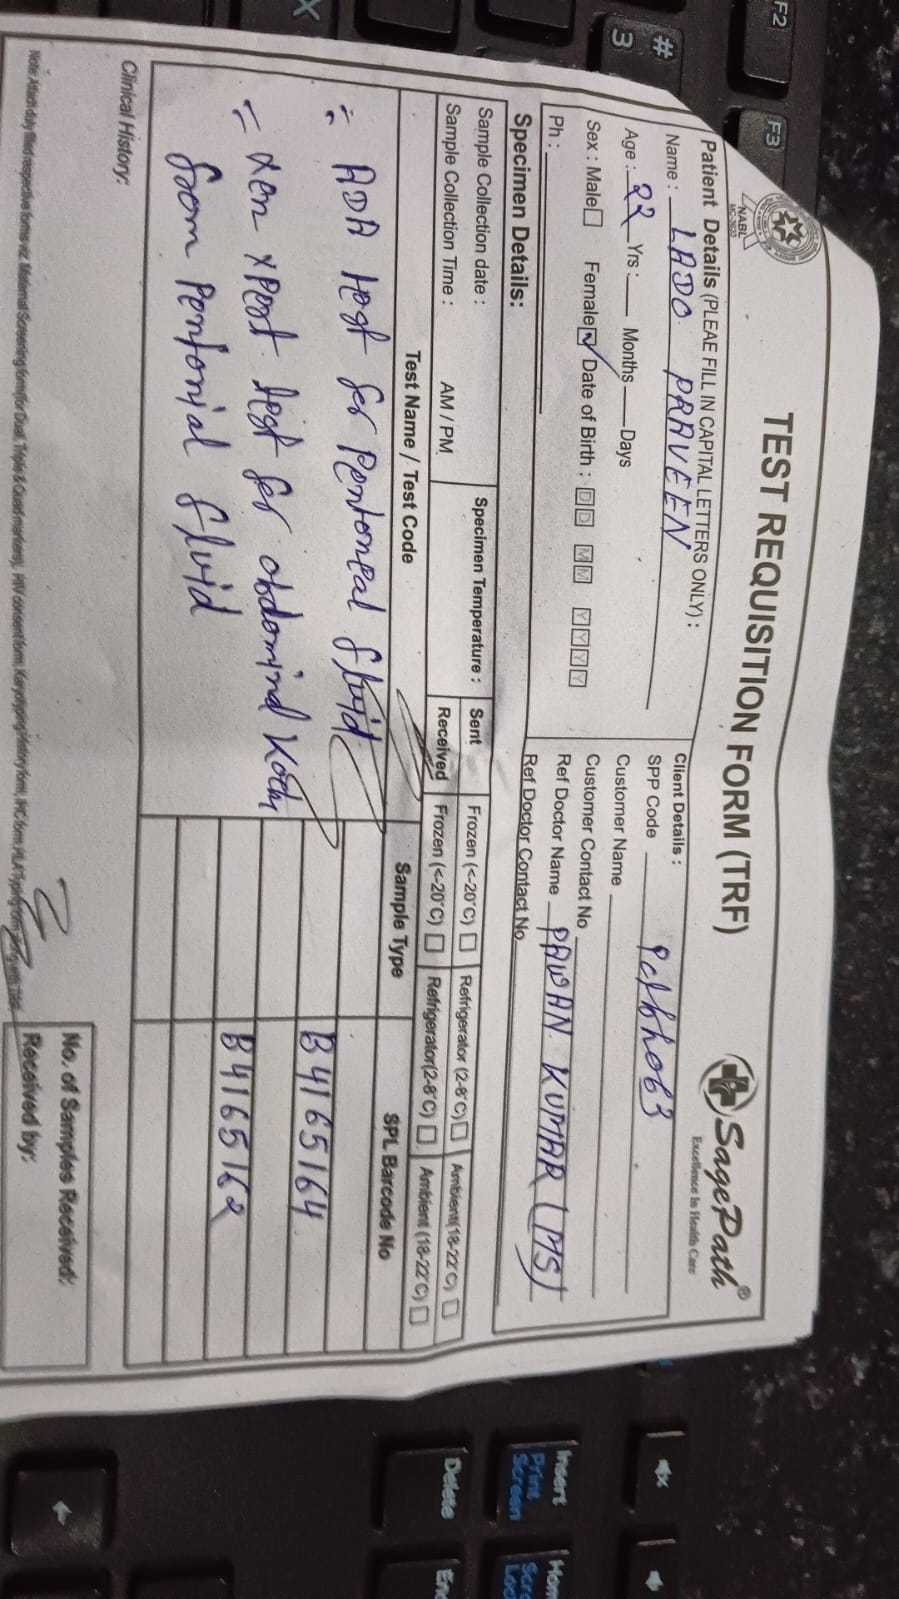 TEST REQUISITION FORM (TRF)
SagePath®
Excellence In Health Care
NABL
Patient Details (PLEAE FILL IN CAPITAL LETTERS ONLY) :
Name : LADO PRAVEEN
Age : 22 Yrs : Months Days
Sex : Male Female Date of Birth : D D M M Y Y Y Y
Ph :
Client Details :
SPP Code
Customer Name
Customer Contact No
Ref Doctor Name PAWAN KUMAR (MS)
Ref Doctor Contact No
Specimen Details:
Sample Collection date :
Sample Collection Time : AM / PM
Specimen Temperature :
Sent Frozen (<-20°C) Refrigerator (2-8°C) Ambient(18-22°C)
Received Frozen (<-20°C) Refrigerator(2-8°C) Ambient (18-22°C)
Test Name / Test Code Sample Type SPL Barcode No
ADA test for Peritoneal fluid B4165164
xpert test for abdominal Koch B4165162
from fluid
Clinical History:
Note: Attach duly filled respective forms viz. Maternal Screening form (for Dual, Triple & Quad markers), HIV consent form, Karyotyping history form, IHC form, HLA Typing form along with TRF.
No. of Samples Received:
Received by:
F2
F3
#
3
X
Insert
Print
Screen
Delete